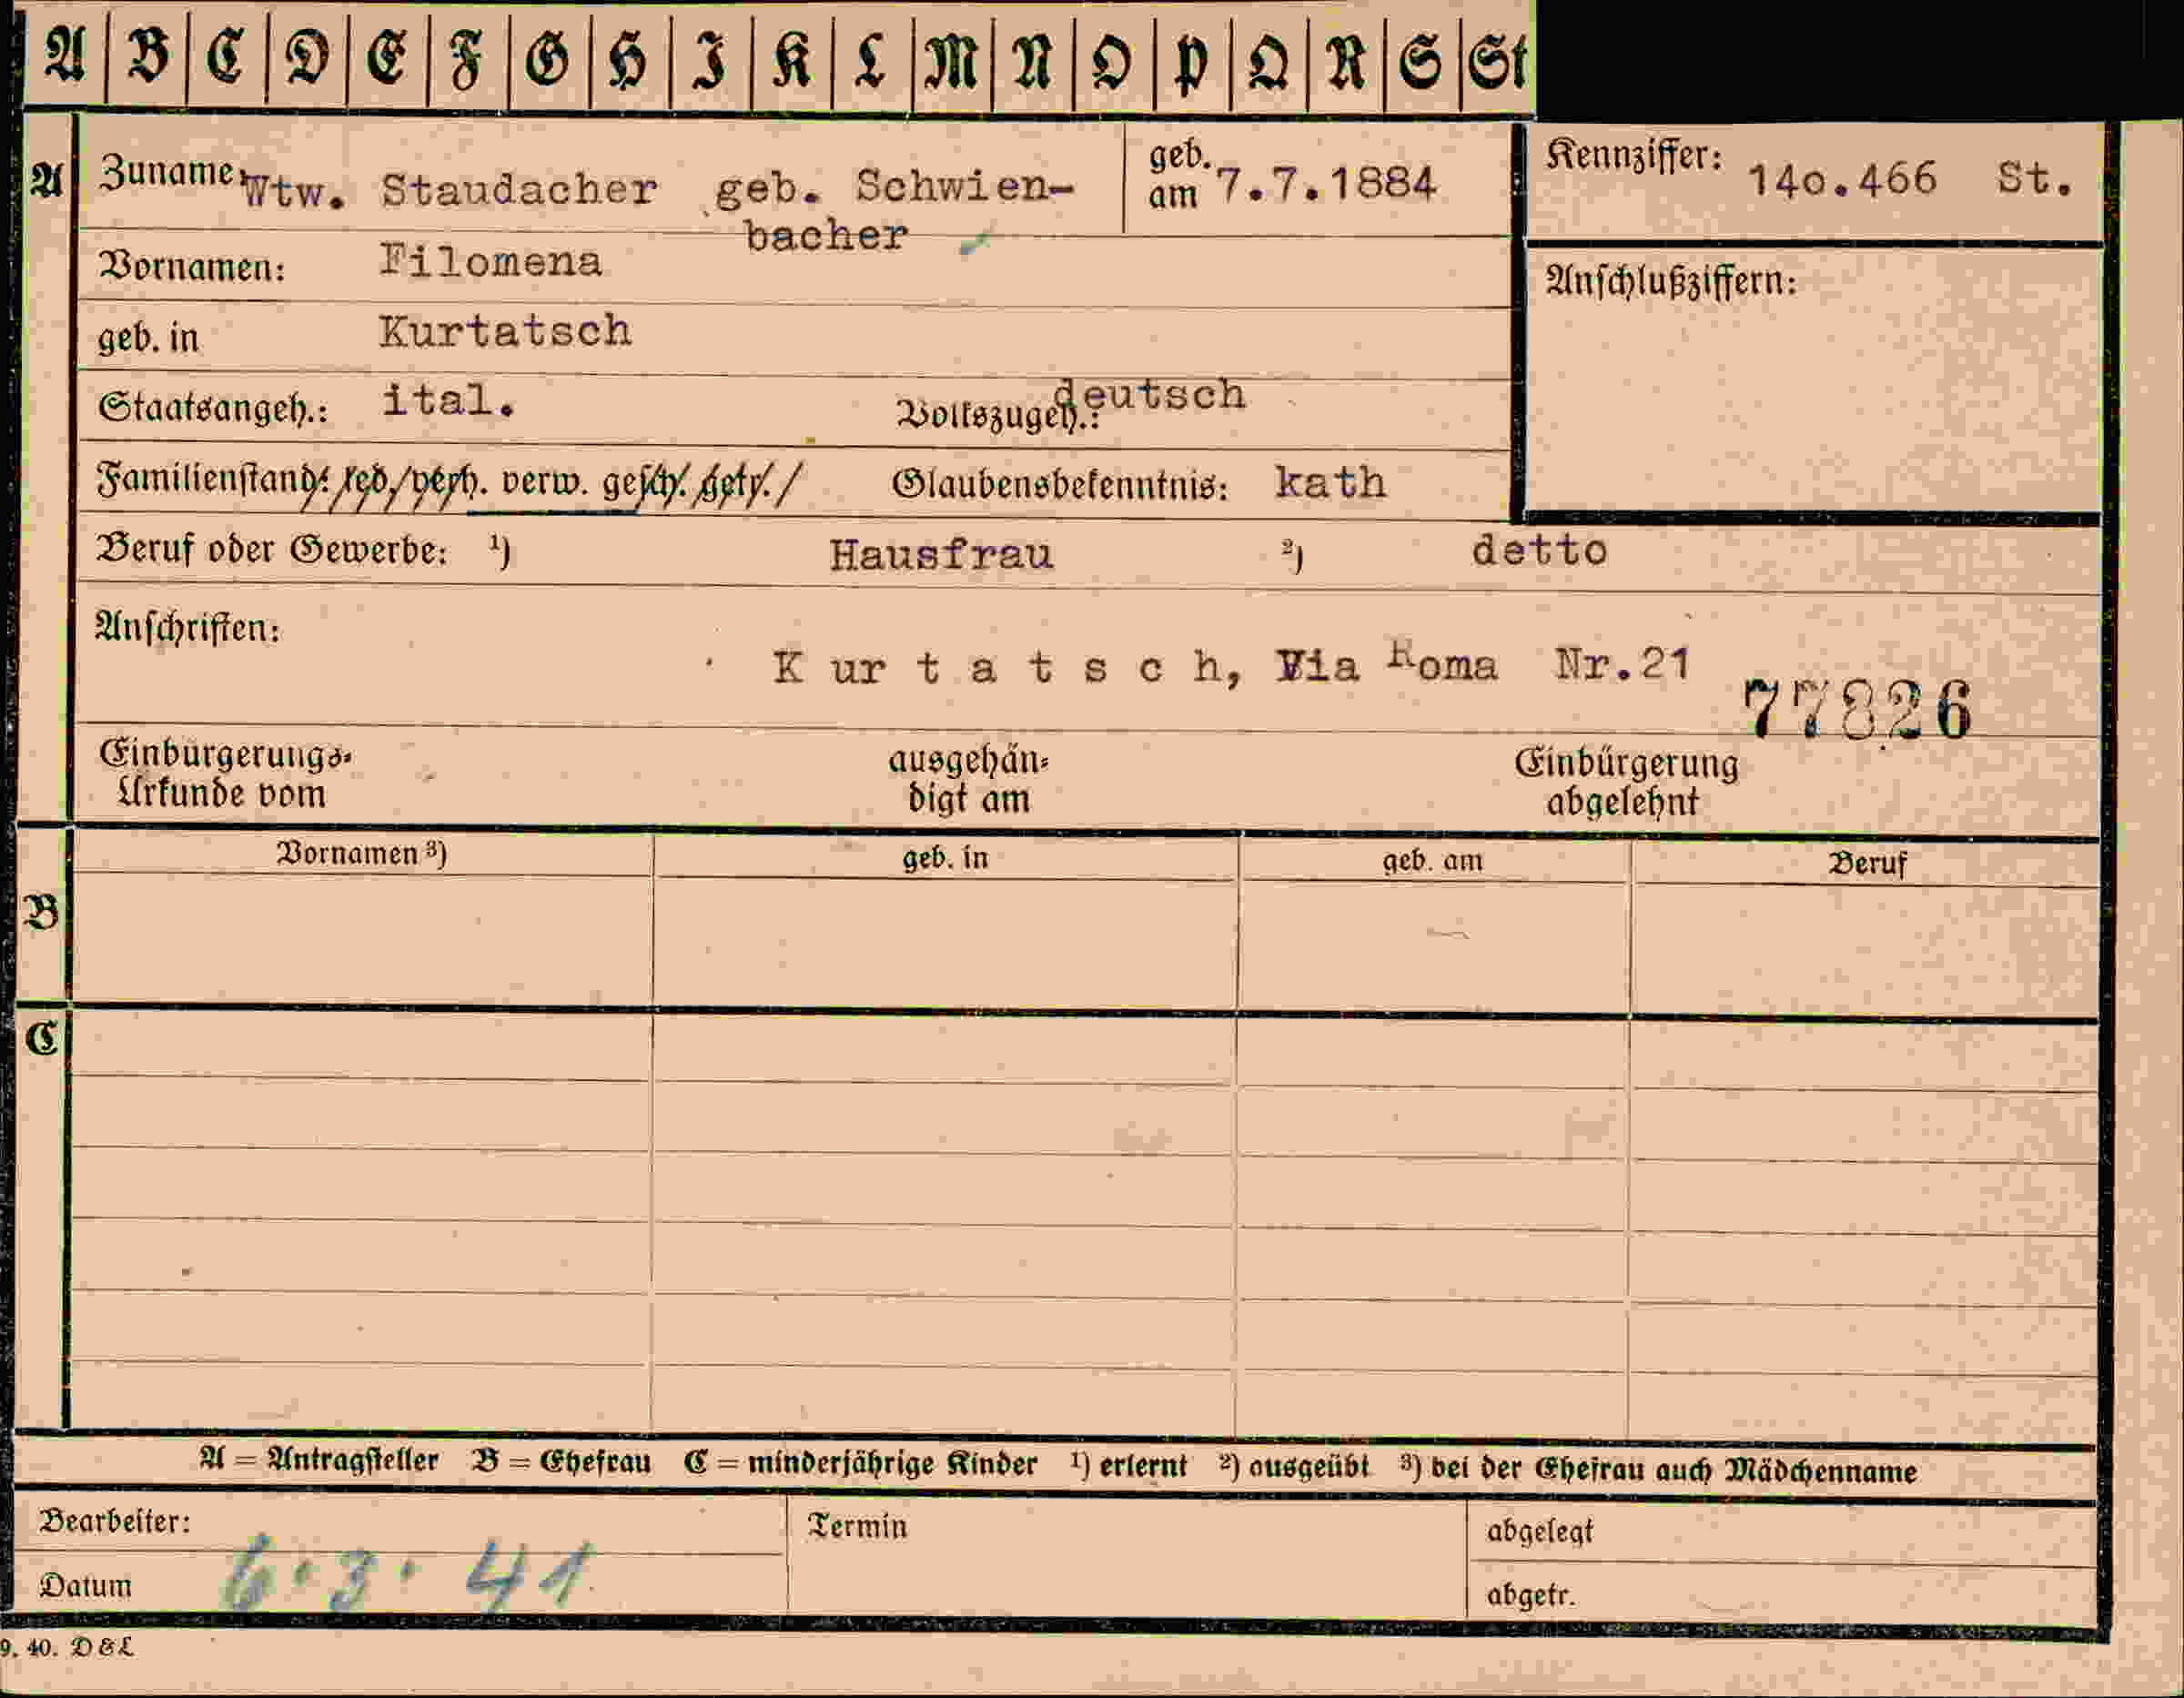 A B C D E F G H I K L M N O P Q R S St
A Zuname: Wtw. Staudacher geb. Schwien- geb. am 7.7.1884 Kennziffer: 14o.466 St.
bacher
Vornamen: Filomena
Anschlußziffern:
geb. in Kurtatsch
Staatsangeh.: ital. Volkszugeh.: deutsch
Familienstand: led. verh. verw. gesch. getr. Glaubensbekenntnis: kath
Beruf oder Gewerbe: ¹) Hausfrau ²) detto
Anschriften:
K ur t a t s c h, Via Roma Nr.21
77826
Einbürgerungs- ausgehän- Einbürgerung
Urkunde vom digt am abgelehnt
Vornamen ³) geb. in geb. am Beruf
B
C
A = Antragsteller B = Ehefrau C = minderjährige Kinder ¹) erlernt ²) ausgeübt ³) bei der Ehefrau auch Mädchenname
Bearbeiter: Termin abgelegt
Datum 6.3.41 abgetr.
9. 40. D & L